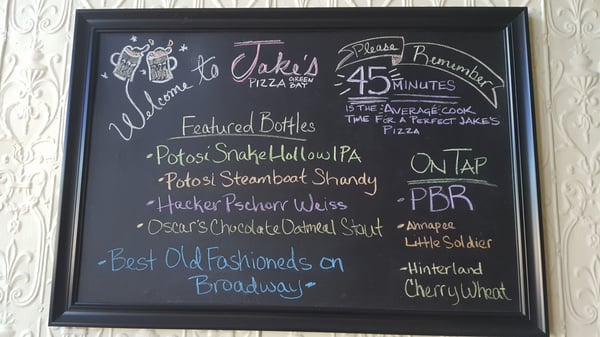 Welcome to Jake's
PIZZA GREEN BAY
Please Remember
45 MINUTES
IS THE "AVERAGE" COOK
TIME FOR A PERFECT JAKE'S
PIZZA
Featured Bottles
• Potosi Snake Hollow IPA
• Potosi Steamboat Shandy
• Hacker Pschorr Weiss
• Oscar's Chocolate Oatmeal Stout
• Best Old Fashioneds on
Broadway •
ON TAP
• PBR
• Ahnapee
Little Soldier
• Hinterland
Cherry Wheat